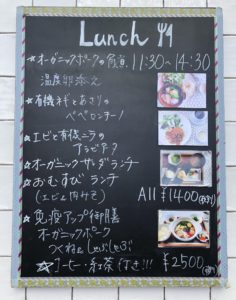 Lunch
11:30~14:30
☆オーガニックポークの
温度卵添え
☆有機ネギとあさりの
ペペロンチーノ
☆エビと有機ニラの
アラビアータ
☆オーガニックサラダランチ
☆おむすびランチ
(エビと肉みそ)
All ¥1400
☆免疫アップ御膳
オーガニックポーク
つくね しゃぶしゃぶ
☆コーヒー・紅茶付き!!!
¥2500